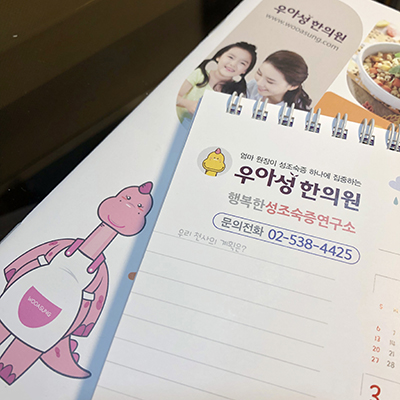 우아성한의원
www.wooasung.com
엄마 원장이 성조숙증 하나에 집중하는
우아성한의원
행복한성조숙증연구소
문의전화 02-538-4425
우리 천사의 계획은?
WOOASUNG
3
6
13
20
27